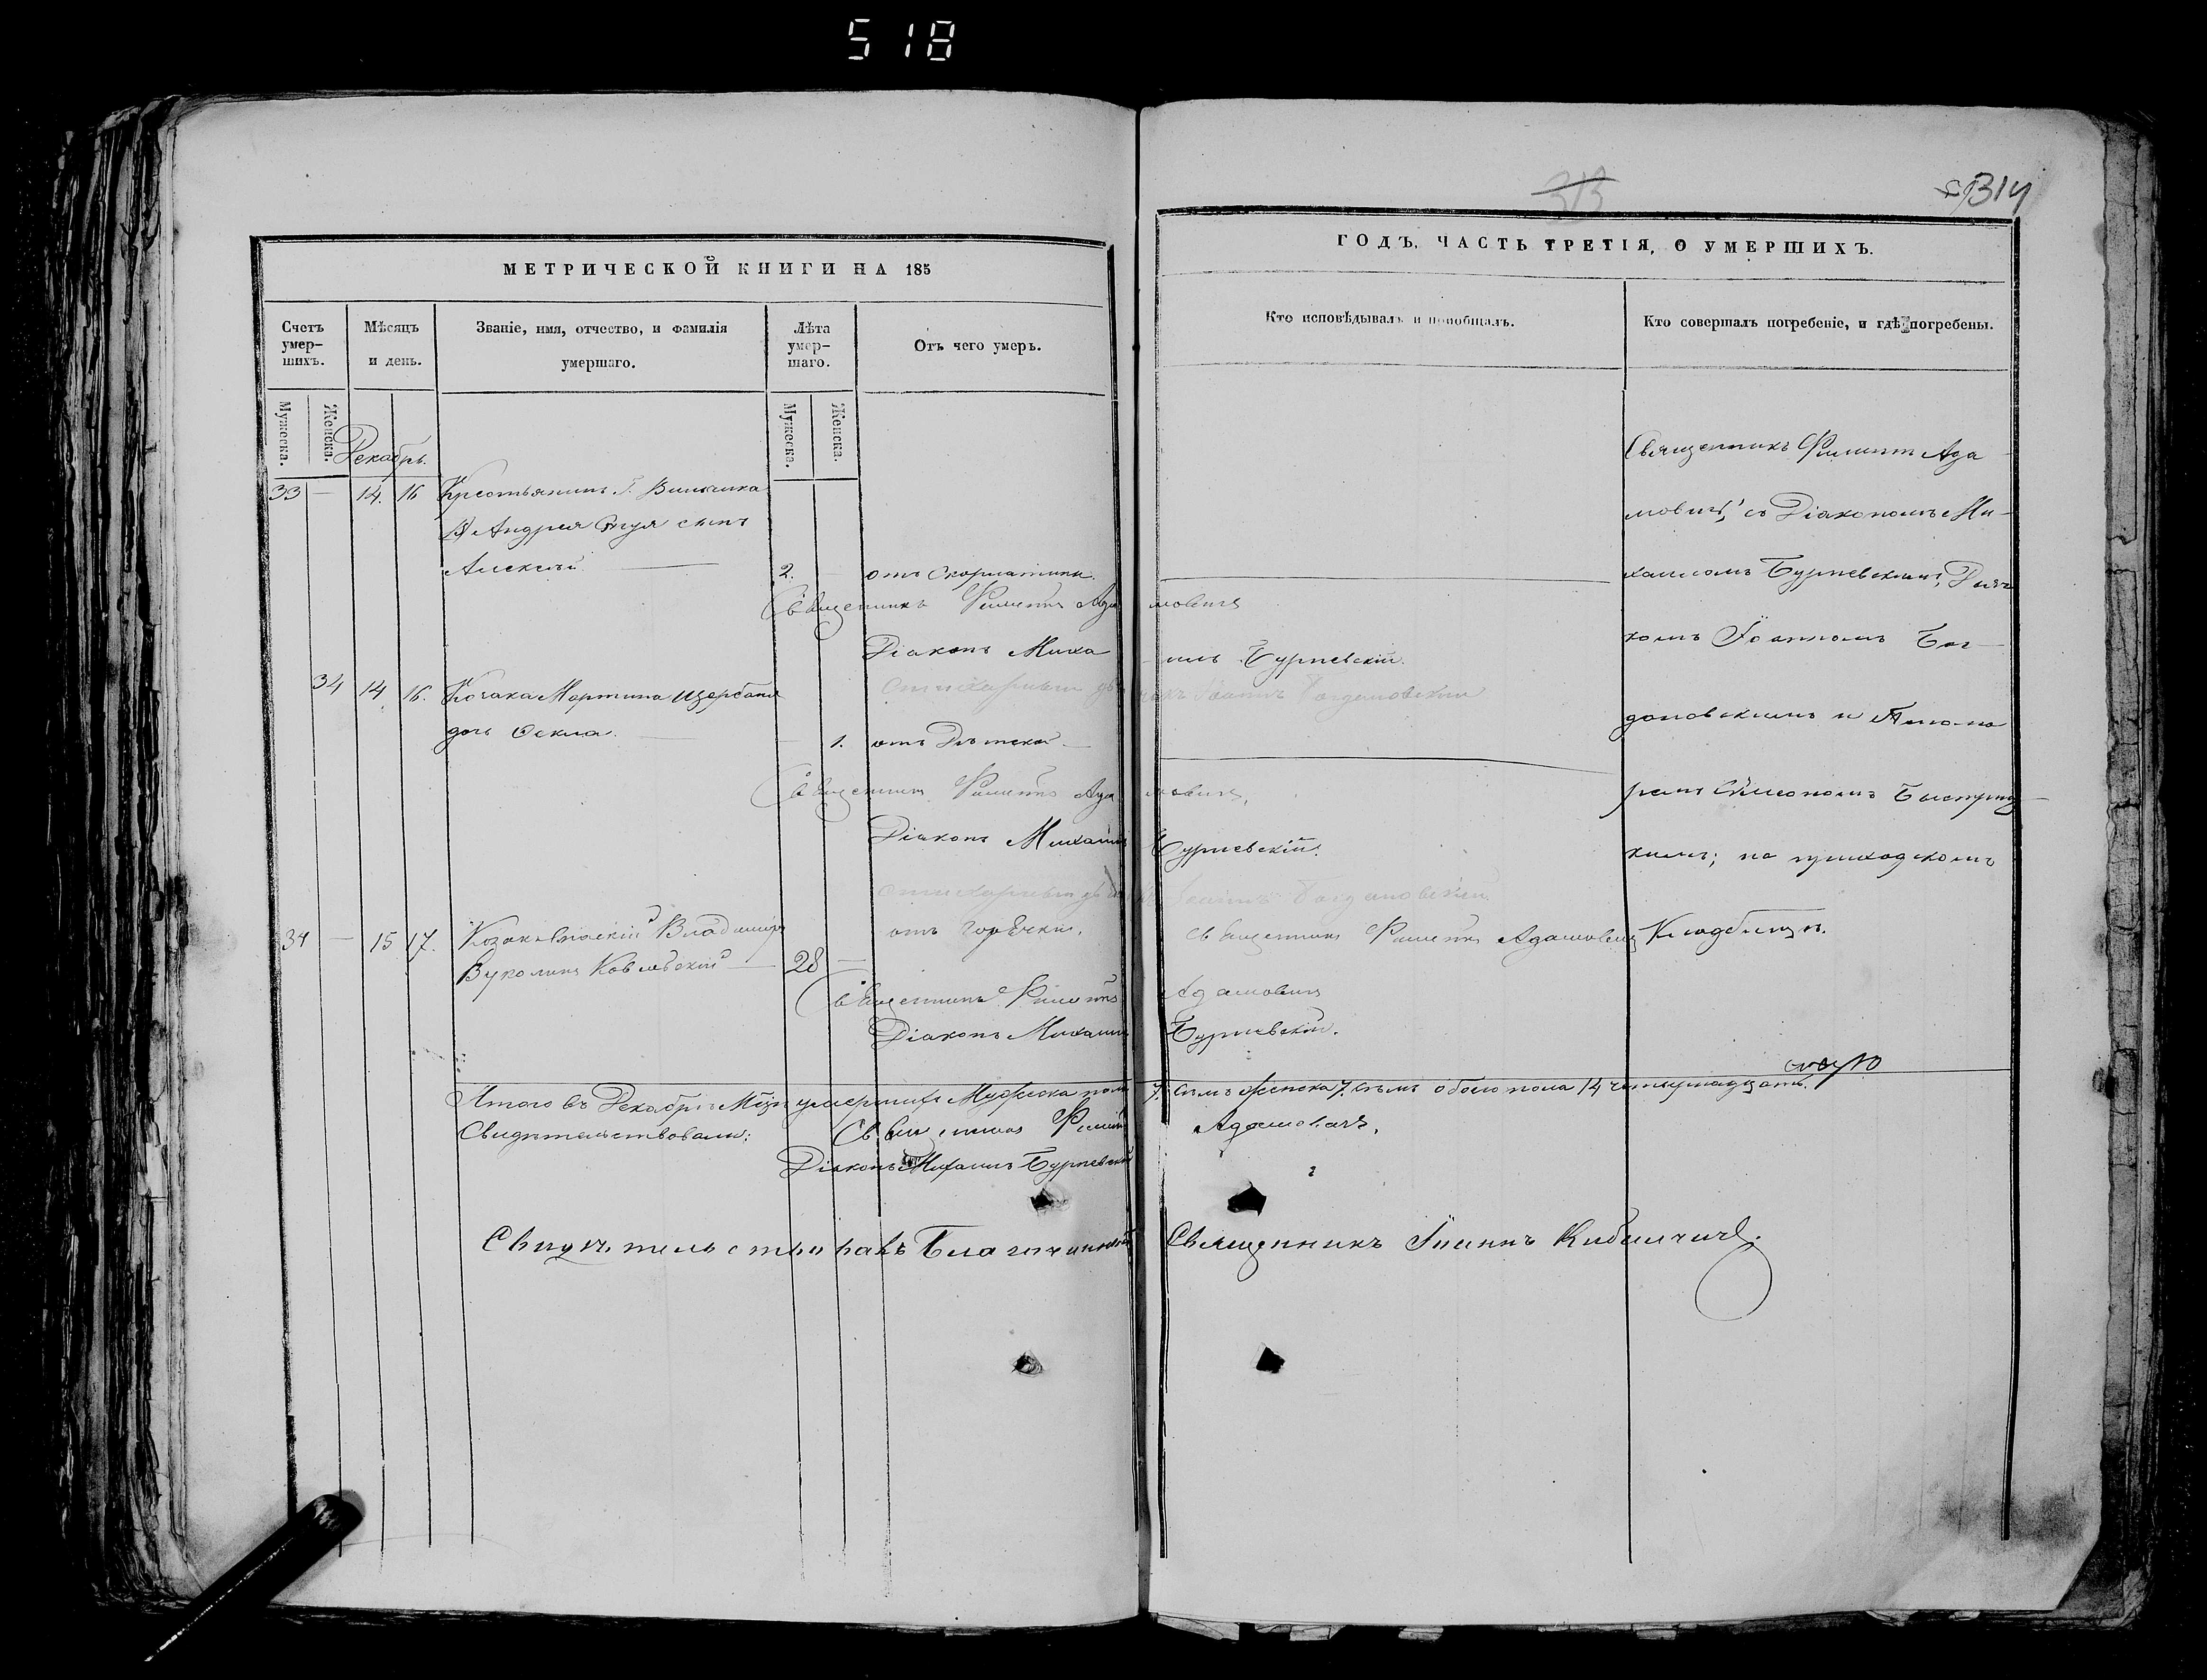 518
313
314
МЕТРИЧЕСКОЙ КНИГИ НА 185
ГОДЪ, ЧАСТЬ ТРЕТІЯ, О УМЕРШИХЪ.
Счетъ умер-шихъ.
Мѣсяцъ и день.
Званіе, имя, отчество, и фамилія умершаго.
Лѣта умер-шаго.
Отъ чего умеръ.
Кто исповѣдывалъ и пріобщалъ.
Кто совершалъ погребеніе, и гдѣ погребены.
Мужеска.
Женска.
Мужеска.
Женска.
Декабрь.
33 — 14. 16 Крестьянина Г.
Андрея сынъ
Алексѣй — 2. отъ Скорлатины.
Священникъ Филиппъ Адамовичъ
Діаконъ Михаилъ Бурневскій.
Стихарный дьячокъ Іоаннъ Богдановскій
34 14 16. Козака Мартина Щербани
дочь Фекла. — 1. отъ Дѣтской —
Священникъ Филиппъ Адамовичъ,
Діаконъ Михаилъ Бурневскій.
Стихарный Іоаннъ Богдановскій
34 — 15 17. Козакъ Владиміръ
28 — отъ горячки. Священникъ Филиппъ Адамовичъ
Священникъ Филиппъ Адамовичъ
Діаконъ Михаилъ Бурневскій.
Священникъ Филиппъ Ада-
мовичъ, съ Діакономъ Ми-
хаиломъ Бурневскимъ, Дьяч-
комъ Іоанномъ Бог-
дановскимъ и Поно-
ремъ Симеономъ Быстриц-
кимъ; на приходскомъ
Кладбищѣ.
Итого въ Декабрѣ Мцѣ умершихъ Мужеска пола 7. семь Женска 7. семь обоего пола 14 четырнадцать.
Свидѣтельствовали: Священникъ Филиппъ Адамовичъ,
Діаконъ Михаилъ Бурневскій
Свидѣтельствовалъ Благочинный Священникъ Іоаннъ Кибальчичъ.